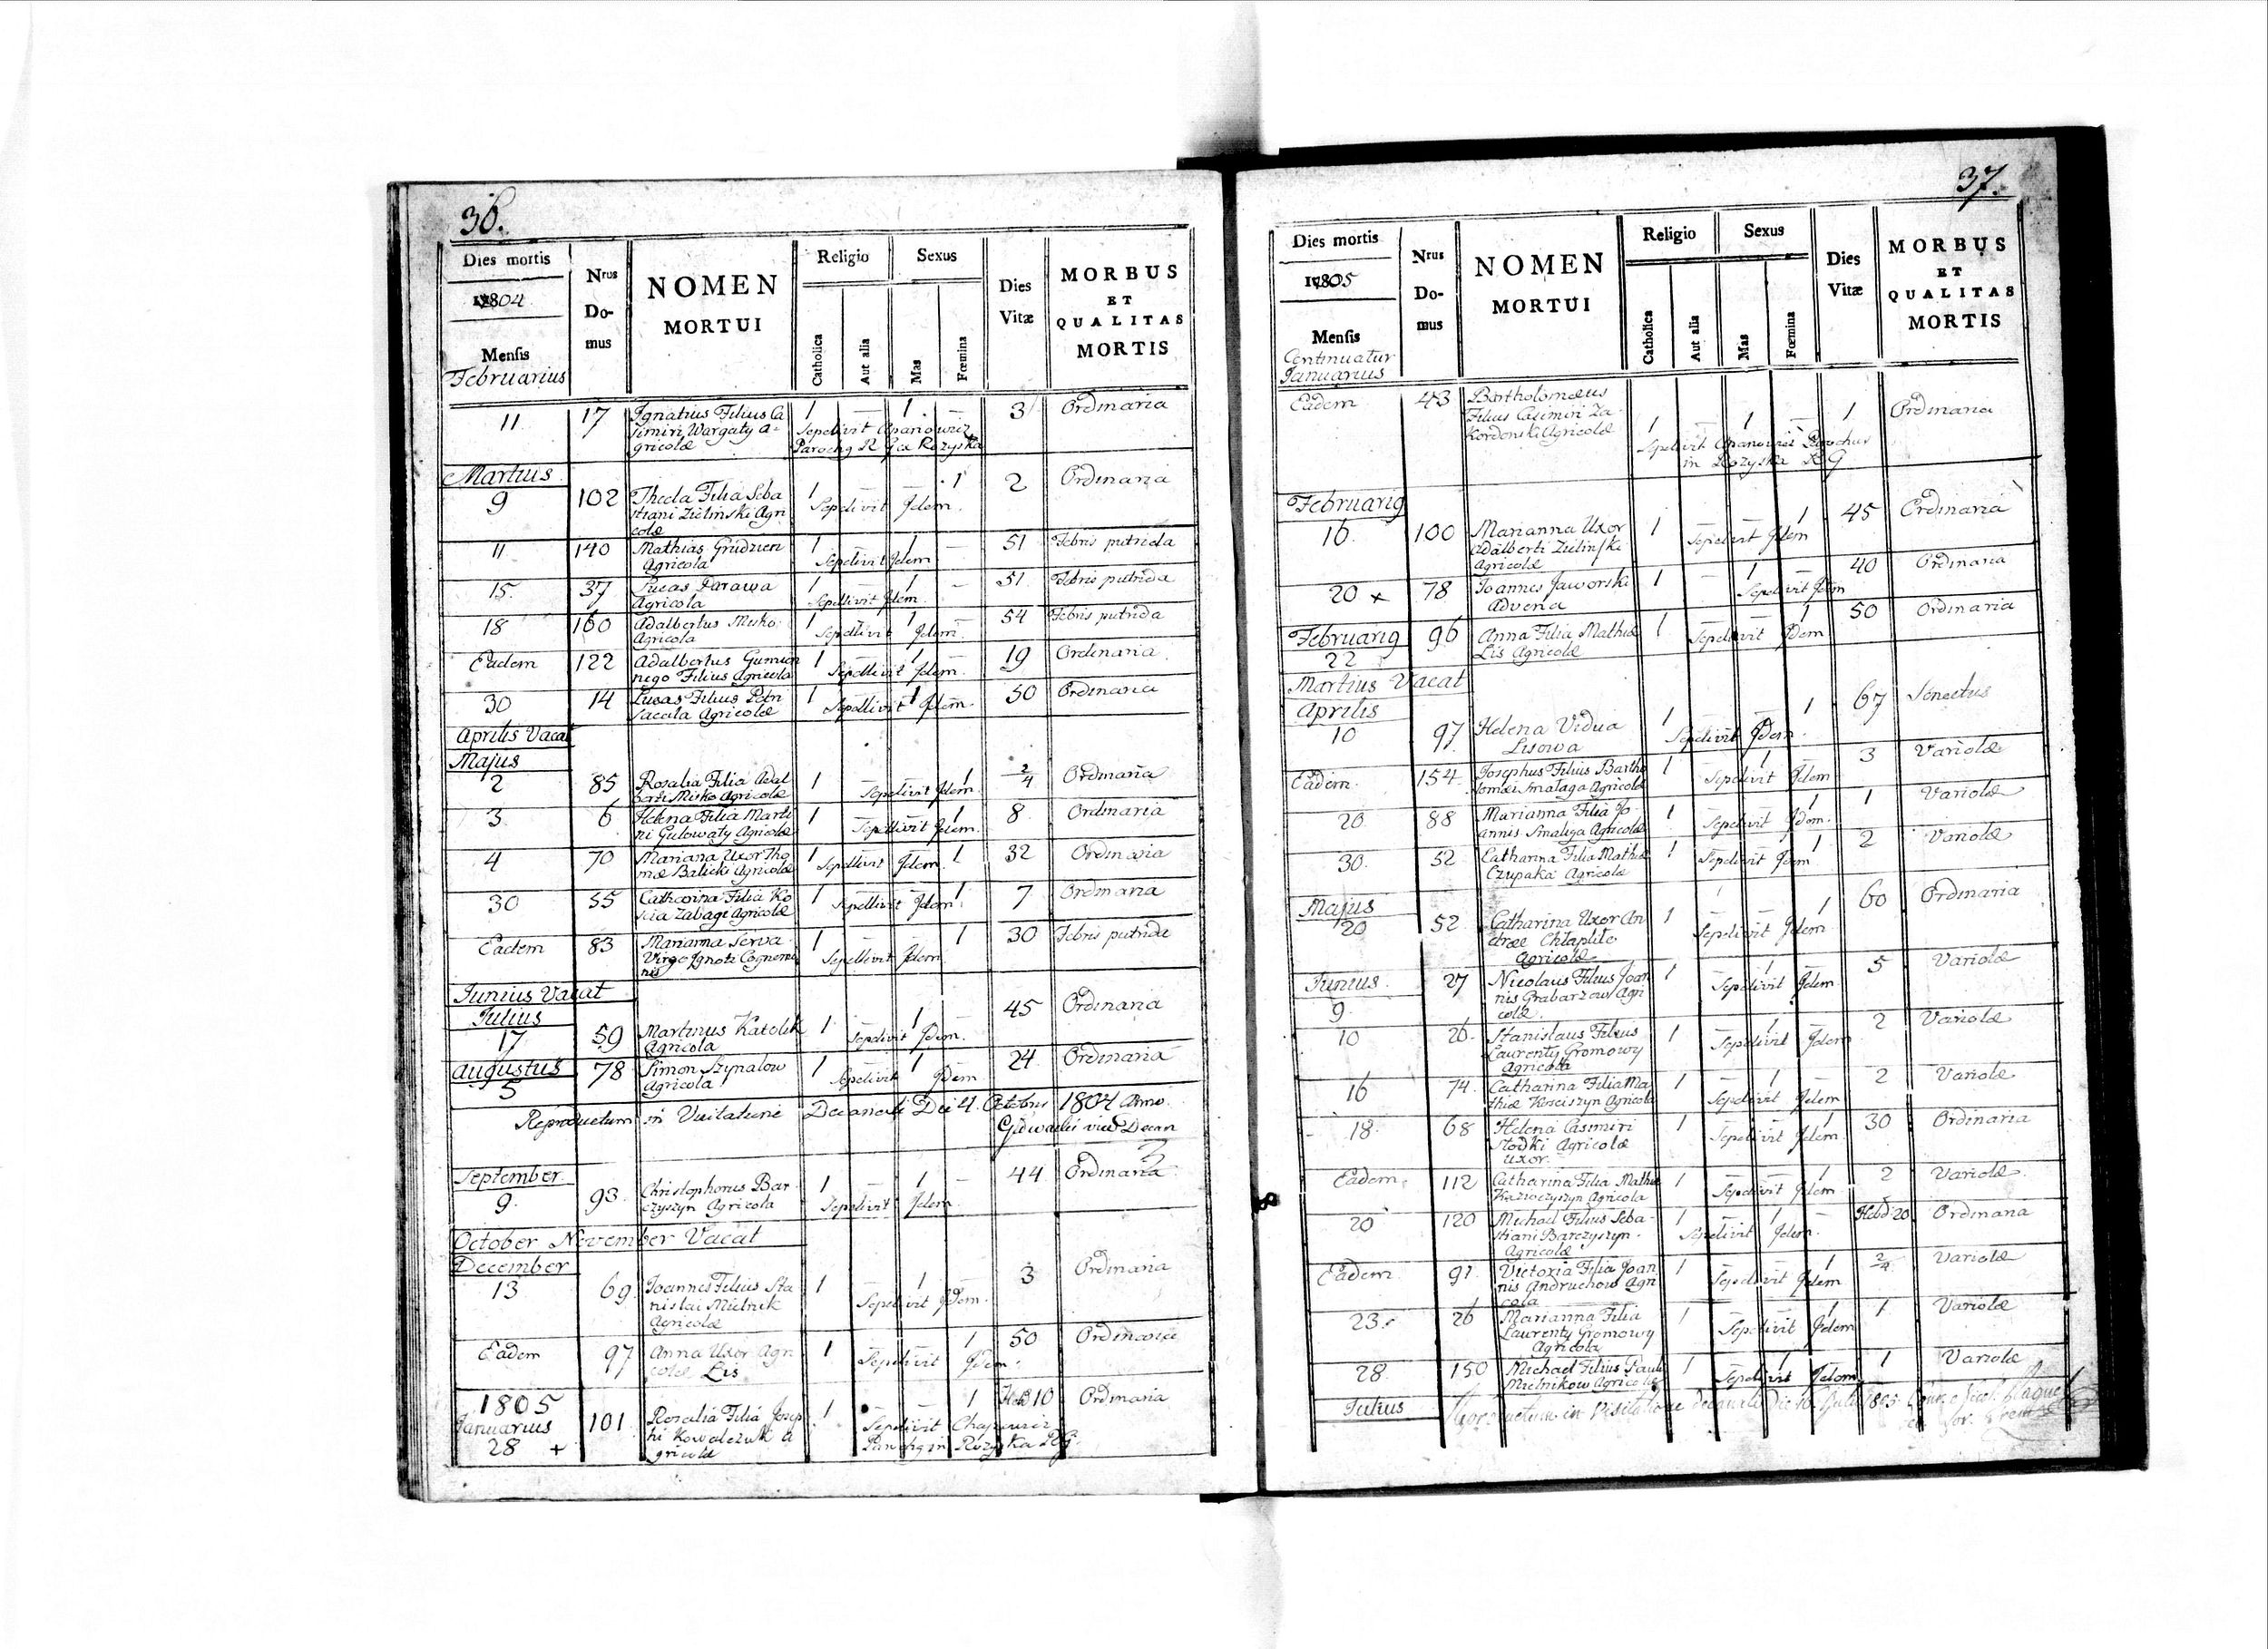 36.
Dies mortis
1804
Mensis
Februarius
Nrus
Do-
mus
NOMEN
MORTUI
Religio
Catholica
Aut alia
Sexus
Mas
Fœmina
Dies
Vitæ
MORBUS
ET
QUALITAS
MORTIS
11 17 Ignatius Filius Ca 1 — 1 . — 3 Ordinaria
simiri Wargaty A= Sepelivit
gricolæ Paroch9 R
Martius
9 102 Thecla Filia Seba 1 — — 1 2 Ordinaria
stiani Zielinski Agri Sepelivit Idem.
colæ
11 140 Mathias Grudzien 1 — 1 — 51 Febris putrida
Agricola Sepelivit Idem
15. 37 Lucas Parawa 1 — 1 — 51. Febris putrida
Agricola Sepellivit Idem.
18 160 Adalbertus Misko. 1 — 1 — 54 Febris putrida
Agricola Sepellivit Idem.
Eadem 122 Adalbertus Gumien 1 — 1 — 19 Ordinaria.
nego Filius Agricola Sepellivit Idem.
30 14 Lucas Filius Petri 1 — 1 — 50 Ordinaria
Agricolæ Sepellivit Idem.
Aprilis Vacat
Majus
2 85 Rosalia Filia Adal 1 — — 1 2/4 Ordinaria
berti Misko Agricolæ Sepelivit Idem.
3. 6 Helena Filia Marti 1 — — 1 8 Ordinaria
ni Gulowaty Agricolæ Sepellivit Idem.
4 70 Mariana Uxor Tho 1 — — 1 32 Ordinaria
mæ Balicki Agricolæ Sepellivit Idem.
30 55 Catharina Filia Ko 1 — — 1 7 Ordinaria
Zabagi Agricolæ Sepellivit Idem.
Eadem 83 Marianna Serva 1 — — 1 30 Febris putridæ
Virgo Ignoti Cognomi Sepellivit Idem
nis
Junius Vacat
Julius
17 59 Martinus Katolik 1 — 1 45 Ordinaria
Agricola Sepelivit Idem.
Augustus
5 78 Simon Szynalow 1 — 1 — 24 Ordinaria
Agricola Sepelivit Idem
Reproductum in Visitatione Decanali Die 4. Octobris 1804 Anno.
Decan
September
9. 93. Christophorus Bar 1 — 1 — 44 Ordinaria
czyszyn Agricola Sepelivit Idem.
October November Vacat
December
13 69 Joannes Filius Sta 1 — 1 — 3 Ordinaria
nislai Mielnik Sepelivit Idem.
Agricolæ
Eadem 97 Anna Uxor Agri 1 — — 1 50 Ordinaria
colæ Lis Sepelivit Idem.
1805
Januarius
28 + 101 Rosalia Filia Josep 1 — — 1 Hebd 10 Ordinaria
hi Kowalczuk A Sepelivit
gricolæ
37.
Dies mortis
1805
Mensis
Continuatur
Januarius
Nrus
Do-
mus
NOMEN
MORTUI
Religio
Catholica
Aut alia
Sexus
Mas
Fœmina
Dies
Vitæ
MORBUS
ET
QUALITAS
MORTIS
Eadem 43 Bartholomæus
Filius Casimiri Za- 1 — 1 — 1 Ordinaria
kordonski Agricolæ
Sepelivit Parochus
in Rozyska R G
Februari9
16. 100 Marianna Uxor 1 — — 1 45 Ordinaria
Adalberti Zielinski Sepelivit Idem
Agricolæ
20 x 78 Joannes Jaworski 1 — 1 — 40 Ordinaria
Advena Sepelivit Idem
Februari9
22 96 Anna Filia Mathiæ 1 — — 1 50 Ordinaria
Lis Agricolæ Sepelivit Idem
Martius Vacat
Aprilis
10 97 Helena Vidua 1 — — 1 67 Senectus
Lisowa Sepelivit Idem.
Eadem. 154 Josephus Filius Bartho 1 — 1 3 Variolæ
lomæi Smalaga Agricolæ Sepelivit Idem
20 88 Marianna Filia Jo 1 — — 1 1 Variolæ
annis Smaliga Agricolæ Sepelivit Idem.
30. 52 Catharina Filia Mathiæ 1 — — 1 2 Variolæ
Czupaka Agricolæ Sepelivit Idem
Majus
20 52 Catharina Uxor An 1 — — 1 60 Ordinaria
dreæ Sepelivit Idem
Agricolæ
Junius.
9. 27 Nicolaus Filius Joan 1 — 1 — 5 Variolæ
nis Grabarzow Agri Sepelivit Idem
colæ.
10 26. Stanislaus Filius 1 — 1 2 Variolæ
Laurenty Gromowy Sepelivit Idem
Agricola
16 74. Catharina Filia Ma 1 — 1 — 2 Variolæ
thiæ Kosciszyn Agricola Sepelivit Idem
18. 68 Helena Casimiri 1 — — 1 30 Ordinaria
Slodki Agricolæ Sepelivit Idem.
uxor.
Eadem. 112 Catharina Filia Mathiæ 1 — — 1 2 Variolæ.
Agricola Sepelivit Idem
20 120 Michael Filius Seba- 1 — 1 — Hebd: 20 Ordinaria
stiani Barczyszyn. Sepelivit Idem.
Agricolæ
Eadem 91. Victoria Filia Joan 1 — — 1 2/4 Variolæ
nis Andruchow Agri Sepelivit Idem
cola
23. 26 Marianna Filia 1 — — 1 1 Variolæ
Laurenty Gromowy Sepelivit Idem
Agricola
28. 150 Michael Filius Pauli 1 — 1 1 Variolæ
Mielnikow Agricolæ Sepelivit Idem
Julius Reproductum in Visitatione Decanali Die 16. Julii 1805.